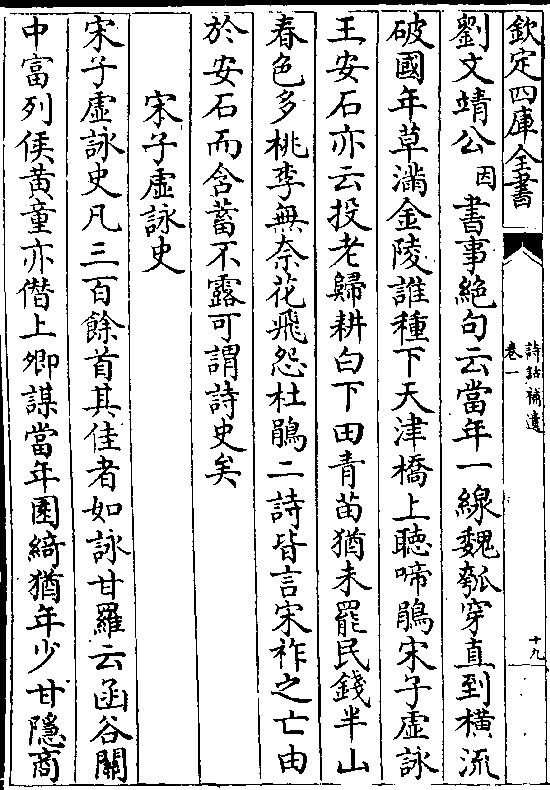 欽定四庫全書
詩話補遺
卷一
十九
劉文靖公因書事絶句云當年一線魏瓠穿直到橫流
破國年草滿金陵誰種下天津橋上聴啼鵑宋子虛詠
王安石亦云投老歸耕白下田青苗猶未罷民錢半山
春色多桃李無奈花飛怨杜鵑二詩皆言宋祚之亡由
於安石而含蓄不露可謂詩史矣
宋子虛詠史
宋子虛詠史凡三百餘首其佳者如詠甘羅云函谷關
中富列侯黄童亦僭上卿謀當年園綺猶年少甘隱商